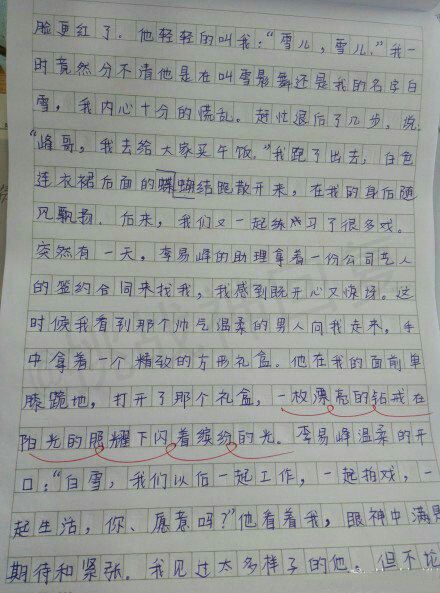 脸更红了。他轻轻的叫我:“雪儿,雪儿。”我一
时竟然分不清他是在叫雪影舞还是我的名字白
雪。我内心十分的慌乱。赶忙退后了几步,说:
“峰哥,我去给大家买午饭。”我跑了出去,白色
连衣裙后面的蝴蝶结跑散开来,在我的身后随
风飘扬。后来,我们又一起练习了很多戏。
突然有一天,李易峰的助理拿着一份公司艺人
的签约合同来找我,我感到既开心又惊讶。这
时候我看到那个帅气温柔的男人向我走来,手
中拿着一个精致的方形礼盒。他在我的面前单
膝跪地,打开了那个礼盒,一枚漂亮的钻戒在
阳光的照耀下闪着缤纷的光。李易峰温柔的开
口:“白雪,我们以后一起工作,一起拍戏,一
起生活,你、愿意吗?”他看着我,眼神中满是
期待和紧张。我见过太多样子的他。但不论